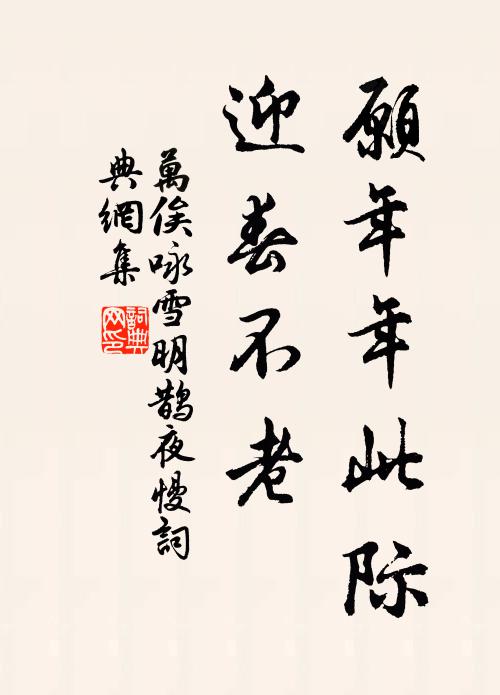 願年年此际
迎春不老
萬俟咏雪明鵲夜慢詞
典網集
詞典
网印